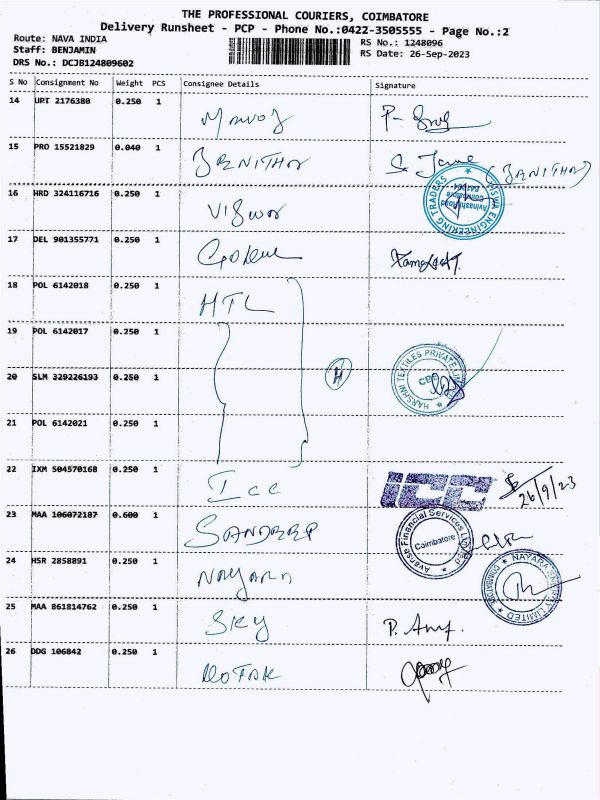 THE PROFESSIONAL COURIERS, COIMBATORE
Delivery Runsheet - PCP - Phone No.:0422-3505555 - Page No.:2
Route: NAVA INDIA RS No.: 1248096
Staff: BENJAMIN RS Date: 26-Sep-2023
DRS No.: DCJB124809602
S No Consignment No Weight PCS Consignee Details Signature
14 UPT 2176380 0.250 1
15 PRO 15521829 0.040 1 ZENITHA (ZANITHA)
16 HRD 324116716 0.250 1 Viswa
ENGINEERING TRADERS
Avinashi Road
Coimbatore
17 DEL 901355771 0.250 1
18 POL 6142018 0.250 1 HTL
19 POL 6142017 0.250 1
20 SLM 329226193 0.250 1 H
HARSHNI TEXTILES PRIVATE LIMITED
CBE
21 POL 6142021 0.250 1
22 IXM 504570168 0.250 1 Icc ICC 26/9/23
23 MAA 106072187 0.600 1 SANDEEP
Avanse Financial Services Limited
Coimbatore
24 HSR 2858891 0.250 1 NAYARA
NAYARA ENERGY LIMITED
25 MAA 861814762 0.250 1 SKY
26 DDG 106842 0.250 1